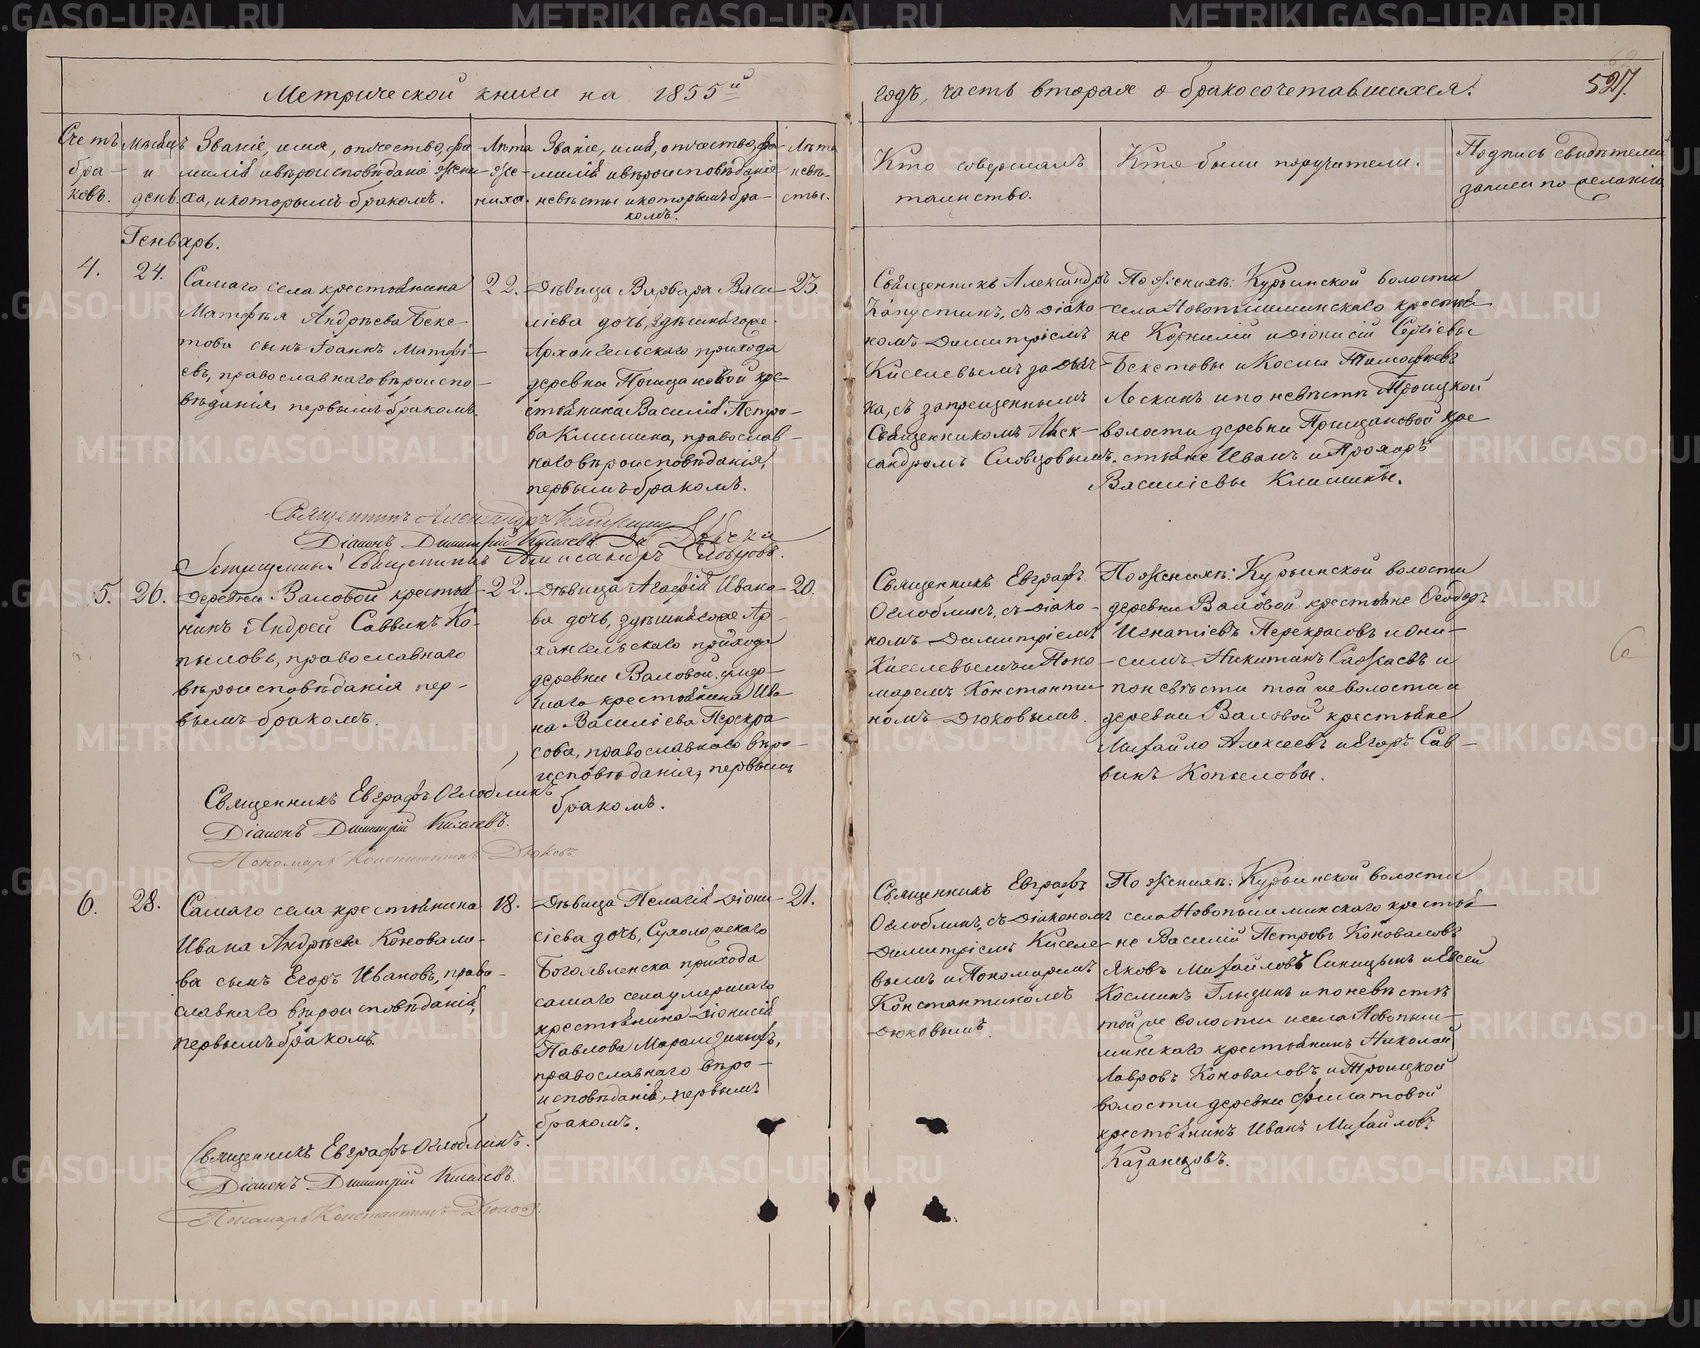 Метрической книги на 1855й
годъ, часть вторая о бракосочетавшихся.
527.
Счетъ бра- ковъ.
Мѣсяцъ и день.
Званіе, имя, отчество, фа-
милія и вѣроисповѣданіе жени-
ха, и которымъ бракомъ.
Лѣта же- ниха.
Званіе, имя, отчество, фа-
милія и вѣроисповѣданіе
невѣсты и которымъ бра-
комъ.
Лѣта невѣ- сты.
Кто совершалъ
таинство.
Кто были поручители.
Подпись свидѣтелей
записи по желанію
Генварь.
4.
24.
Самаго села крестьянина
Матфѣя Андрѣева Беке-
това сынъ Іоаннъ Матѳі-
евъ, православнаго вѣроиспо-
вѣданія, первымъ бракомъ.
22.
Дѣвица Варвара Васи-
ліева дочь, здѣшняго же
Архангельскаго прихода
деревни Прищановой кре-
стьянина Василія Петро-
ва Клишина, православ-
наго вѣроисповѣданія,
первымъ бракомъ.
23.
Священникъ Александръ
Капустинъ, съ діако-
номъ Димитріемъ
Киселевымъ за дьяч-
ка, съ запрещеннымъ
Священникомъ Алек-
сандромъ Словцовымъ.
По женихѣ: Курьинской волости
села Новопышминскаго крестья-
не Корнилій и Діонисій Сергіевы
Бекетовы и Косма Тимофѣевъ
Лескинъ и по невѣстѣ Троицкой
волости деревни Прищановой кре-
стьяне Иванъ и Прохоръ
Василіевы Клишины.
Священникъ Александръ Капустинъ
Діаконъ Димитрій Киселевъ За Дьячка
Запрещенный Священникъ Александръ Словцовъ.
5.
26.
Деревни Валовой крестья-
нинъ Андрей Саввинъ Ко-
пыловъ, православнаго
вѣроисповѣданія пер-
вымъ бракомъ.
22.
Дѣвица Агафія Ивано-
ва дочь, здѣшняго же Ар-
хангельскаго прихода
деревни Валовой, умер-
шаго крестьянина Ива-
на Василіева Перекра-
сова, православнаго вѣро-
исповѣданія, первымъ
бракомъ.
20.
Священникъ Евграфъ
Оглоблинъ, съ діако-
номъ Димитріемъ
Киселевымъ и Поно-
маремъ Константи-
номъ Дюковымъ.
По женихѣ: Курьинской волости
деревни Валовой крестьяне Ѳеодоръ
Игнатіевъ Перекрасовъ и Они-
симъ Никитинъ Саожаевъ и
по невѣсти той же волости и
деревни Валовой крестьяне
Михайло Алексеевъ и Егоръ Сав-
винъ Копыловы.
Священникъ Евграфъ Оглоблинъ
Діаконъ Димитрій Киселевъ.
Пономарь Константинъ Дюковъ
6.
28.
Самаго села крестьянина
Ивана Андрѣева Коновало-
ва сынъ Егоръ Ивановъ, право-
славнаго вѣроисповѣданія,
первымъ бракомъ.
18.
Дѣвица Пелагія Діони-
сіева дочь, Сухоложскаго
Богоявленска прихода
самаго села умершаго
крестьянина Діонисія
Павлова Марамзиныхъ,
православнаго вѣро-
исповѣданія, первымъ
бракомъ.
21.
Священникъ Евграфъ
Оглоблинъ, съ Діакономъ
Димитріемъ Киселе-
вымъ и Пономаремъ
Константиномъ
Дюковымъ.
По женихѣ: Курьинской волости
села Новопышминскаго крестья-
не Василій Петровъ Коноваловъ
Яковъ Михайловъ Синицынъ и Евсей
Косминъ Глызинъ и по невѣстѣ
той же волости и села Новопыш-
минскаго крестьянинъ Николай
Лавровъ Коноваловъ и Троицкой
волости деревни Филатовой
крестьянинъ Иванъ Михайловъ
Казанцовъ.
Священникъ Евграфъ Оглоблинъ.
Діаконъ Димитрій Киселевъ.
Пономарь Константинъ Дюковъ.
METRIKI.GASO-URAL.RU